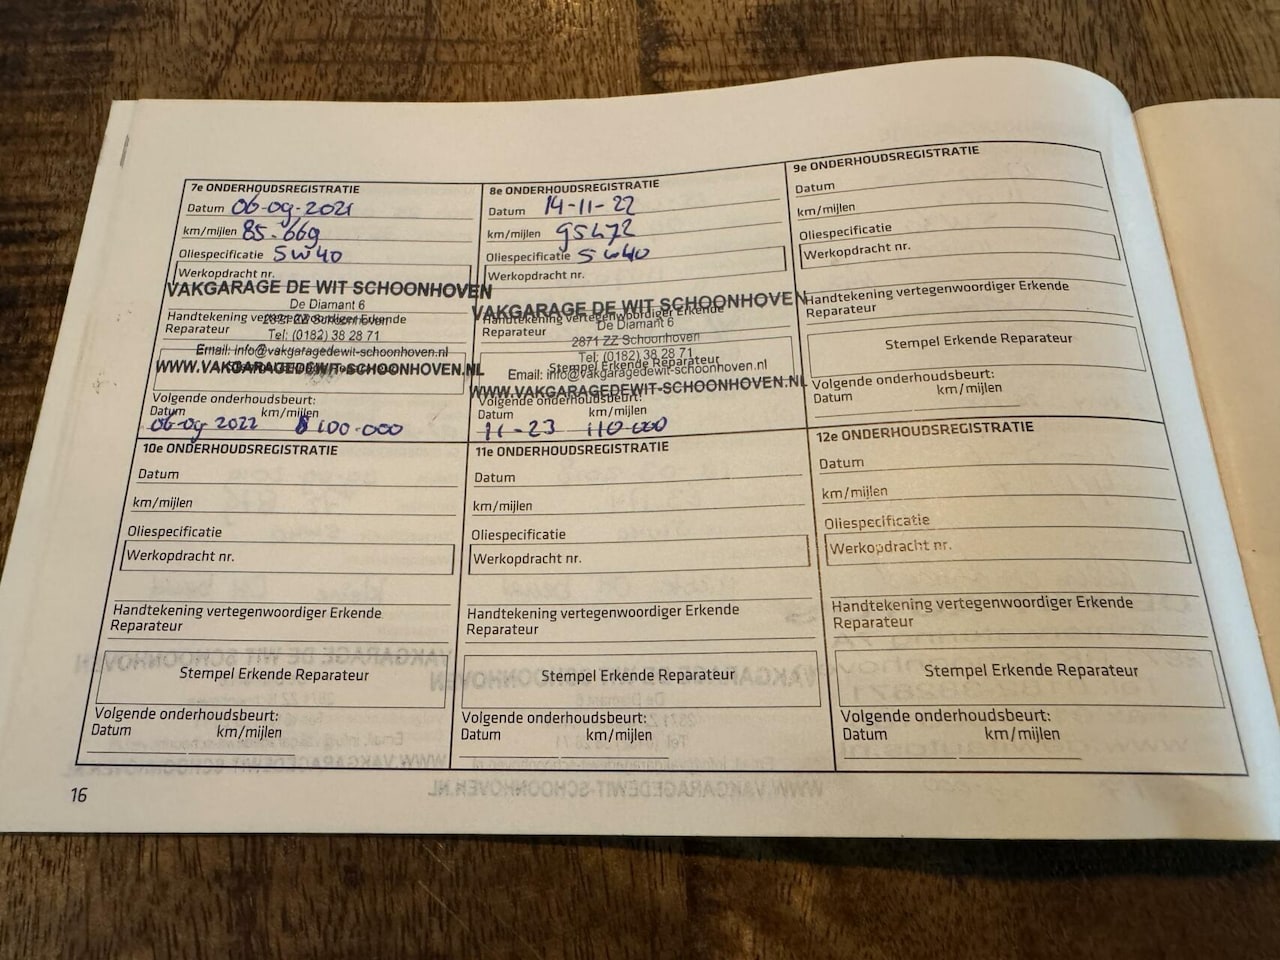 7e ONDERHOUDSREGISTRATIE
Datum 06-09-2021
km/mijlen 85.669
Oliespecificatie 5W40
Werkopdracht nr.
VAKGARAGE DE WIT SCHOONHOVEN
De Diamant 6
Handtekening vertegenwoordiger Erkende
2871 ZZ Schoonhoven
Reparateur
Tel: (0182) 38 28 71
Email: info@vakgaragedewit-schoonhoven.nl
WWW.VAKGARAGEDEWIT-SCHOONHOVEN.NL
Volgende onderhoudsbeurt:
Datum km/mijlen
06-09 2022 100-000
8e ONDERHOUDSREGISTRATIE
Datum 14-11-22
km/mijlen 95472
Oliespecificatie 5W40
Werkopdracht nr.
VAKGARAGE DE WIT SCHOONHOVEN
Handtekening vertegenwoordiger Erkende
De Diamant 6
Reparateur
2871 ZZ Schoonhoven
Tel: (0182) 38 28 71
Stempel Erkende Reparateur
Email: info@vakgaragedewit-schoonhoven.nl
WWW.VAKGARAGEDEWIT-SCHOONHOVEN.NL
Volgende onderhoudsbeurt:
Datum km/mijlen
11-23 110-000
9e ONDERHOUDSREGISTRATIE
Datum
km/mijlen
Oliespecificatie
Werkopdracht nr.
Handtekening vertegenwoordiger Erkende
Reparateur
Stempel Erkende Reparateur
Volgende onderhoudsbeurt:
Datum km/mijlen
10e ONDERHOUDSREGISTRATIE
Datum
km/mijlen
Oliespecificatie
Werkopdracht nr.
Handtekening vertegenwoordiger Erkende
Reparateur
Stempel Erkende Reparateur
Volgende onderhoudsbeurt:
Datum km/mijlen
11e ONDERHOUDSREGISTRATIE
Datum
km/mijlen
Oliespecificatie
Werkopdracht nr.
Handtekening vertegenwoordiger Erkende
Reparateur
Stempel Erkende Reparateur
Volgende onderhoudsbeurt:
Datum km/mijlen
12e ONDERHOUDSREGISTRATIE
Datum
km/mijlen
Oliespecificatie
Werkopdracht nr.
Handtekening vertegenwoordiger Erkende
Reparateur
Stempel Erkende Reparateur
Volgende onderhoudsbeurt:
Datum km/mijlen
16